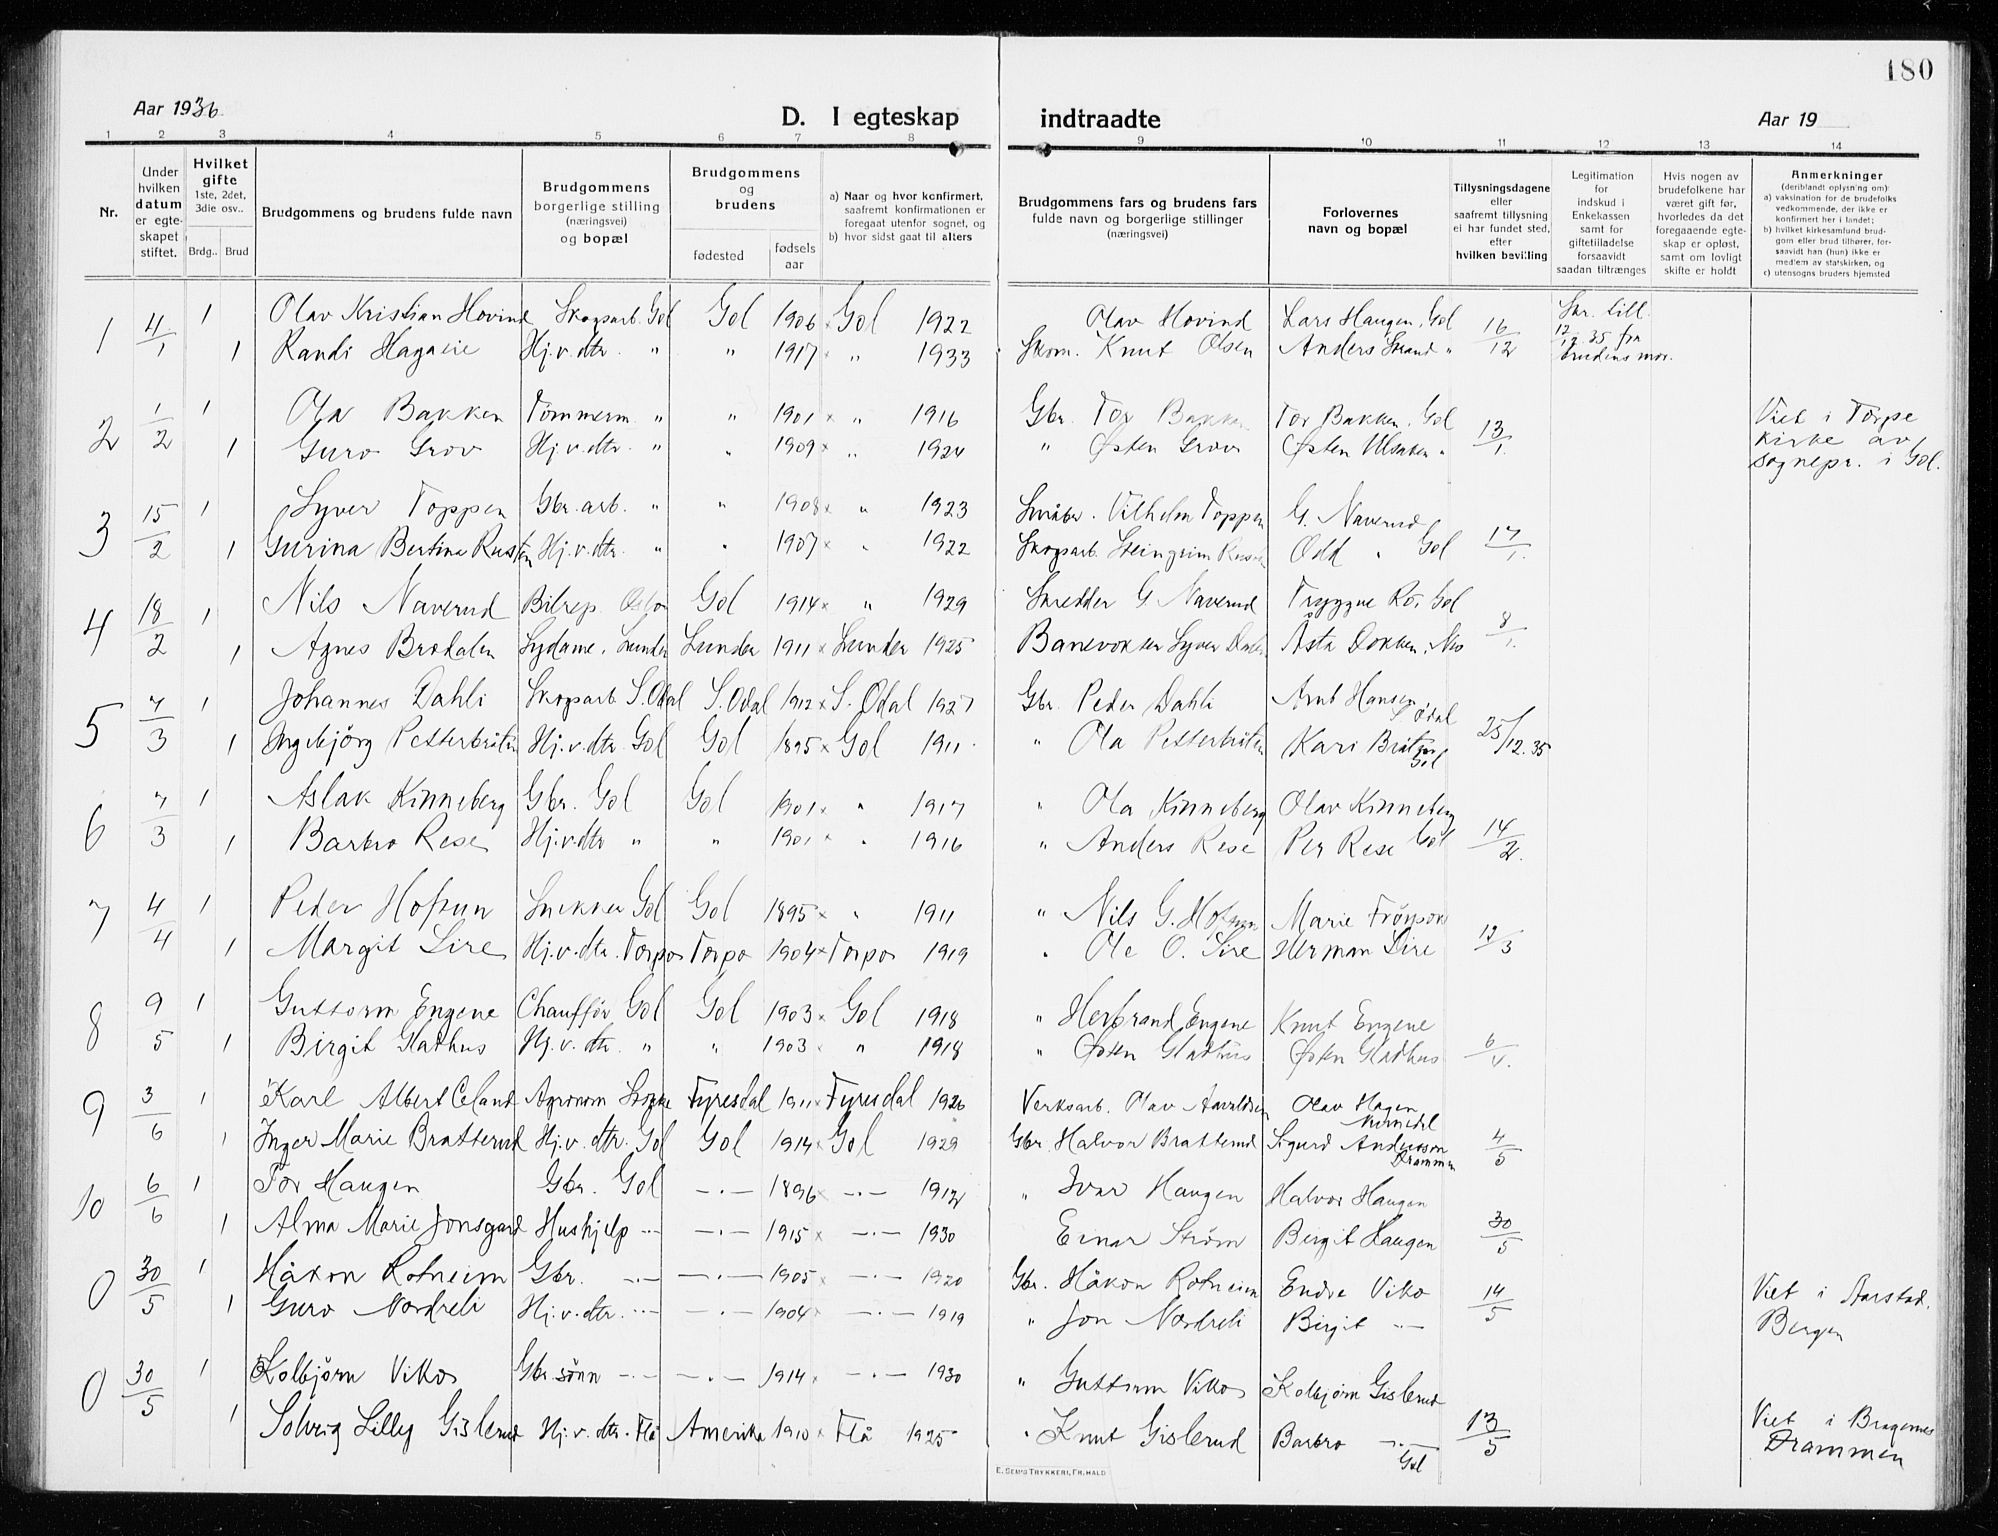 180
Aar 1936
D. I egteskap indtraadte
Aar 19
1 2 3 4 5 6 7 8 9 10 11 12 13 14
Nr.
Under hvilken datum er egteskapet stiftet.
Hvilket gifte 1ste, 2det, 3die osv.. Brdg.. Brud
Brudgommens og brudens fulde navn
Brudgommens borgerlige stilling (næringsvei) og bopæl
Brudgommens og brudens fødested fødselsaar
a) Naar og hvor konfirmert, saafremt konfirmationen er foregaat utenfor sognet, og
b) hvor sidst gaat til alters
Brudgommens fars og brudens fars fulde navn og borgerlige stillinger (næringsvei)
Forlovernes navn og bopæl
Tillysningsdagene eller saafremt tillysning ei har fundet sted, efter hvilken bevilling
Legitimation for indskud i Enkekassen samt for giftetilladelse forsaavidt saadan tiltrænges
Hvis nogen av brudefolkene har været gift før, hvorledes da det foregaaende egteskap er opløst, samt om lovligt skifte er holdt
Anmerkninger (deriblandt oplysning om):
a) vaksination for de brudefolks vedkommende, der ikke er konfirmert her i landet;
b) hvilket kirkesamfund brudgom eller brud tilhører, forsaavidt han (hun) ikke er medlem av statskirken, og
c) utensogns bruders hjemsted
1 4/1 1 Olav Kristian Hovind Skogsarb. Gol Gol 1906 × Gol 1922 Olav Hovind Lars Haugen, Gol 16/12 Skr. till. 12/12.35 fra brudens mor.
1 Randi Hagaeie Hj.v.dtr. " " 1917 × " 1933 Skom. Knut Olsen Anders Strand "
2 1/2 1 Ola Bakken Tømmerm. " " 1901 × " 1916 Gbr. Tor Bakken Tor Bakken, Gol 13/1. Viet i Torpo kirke av sognepr. i Gol.
1 Guro Grov Hj.v.dtr. " " 1909 × " 1924 " Østen Grov Østen Ulsaken "
3 15/2 1 Syver Toppen Gbr.arb. " " 1908 × " 1923 Småbr. Vilhelm Toppen G. Naverud 17/1.
1 Gurina Bertina Rusten Hj.v.dtr. " " 1907 × " 1922 Skogsarb. Steingrim Rusten Odd " Gol
4 18/2 1 Nils Naverud Bilrep. Oslo Gol 1914 × " 1929 Skredder G. Naverud Tryggve Ro, Gol 8/1.
1 Agnes Brodalen Sydame, Lunder Lunder 1911 × Lunder 1925 Banevokter Syver Dalen Åsta Dokken, Nes
5 7/3 1 Johannes Dahli Skogsarb. S. Odal S. Odal 1912 × S. Odal 1927 Gbr. Peder Dahli Arnt Hansen S. Odal 25/12.35
1 Ingebjörg Petterbråten Hj.v.dtr. Gol Gol 1895 × Gol 1911. " Ola Petterbråten Kari Bråten Gol
6 7/3 1 Aslak Kinneberg Gbr. Gol Gol 1901 × " 1917 " Ola Kinneberg Olav Kinneberg 14/2.
1 Barbro Rese Hj.v.dtr " " 1901 × " 1916 " Anders Rese Per Rese Gol
7 4/4 1 Peder Hofsun Snekker Gol Gol 1895 × " 1911 " Nils G. Hofsun Marie Frøysok 12/3
1 Margit Lire Hj.v.dtr. Torpo Torpo 1904 × Torpo 1919 " Ole O. Lire Herman Lire
8 9/5 1 Guttorm Engene Chauffør Gol Gol 1903 × Gol 1918 " Herbrand Engene Knut Engene 6/4.
1 Birgit Gladhus Hj.v.dtr. " " 1903 × " 1918 " Østen Gladhus Østen Gladhus
9 3/6 1 Karl Albert Celand Agronom Fyresdal 1911 × Fyresdal 1926 Verksarb. Olav Aavoldsen Olav Hagen 4/5
1 Inger Marie Bratterud Hj.v.dtr. Gol Gol 1914 × Gol 1929 Gbr. Halvor Bratterud Sigurd Anderssen Drammen
10 6/6 1 Tor Haugen Gbr. Gol —·— 1896 × —·— 1912 " Ivar Haugen Halvor Haugen 30/5
1 Alma Marie Jonsgard Hushjelp —·— —·— 1915 × —·— 1930 Einar Strøm Birgit Haugen
0 30/5 1 Håkon Rotneim Gbr. —·— —·— 1905 × —·— 1920 Gbr. Håkon Rotneim Endre Viko 14/5 Viet i Aarstad, Bergen
1 Guro Nordreli Hj.v.dtr. —·— —·— 1904 × —·— 1919 " Jon Nordreli Birgit —·—
0 30/5 1 Kolbjørn Viko Gbr.sønn —·— —·— 1914 × —·— 1930 " Guttorm Viko Kolbjørn Gislerud 13/5
1 Solveig Lilly Gislerud Hj.v.dtr. Flå Amerika 1910 × Flå 1925 " Knut Gislerud Barbro —·— Gol Viet i Bragernes Drammen
E. SEMS TRYKKERI, FR.HALD